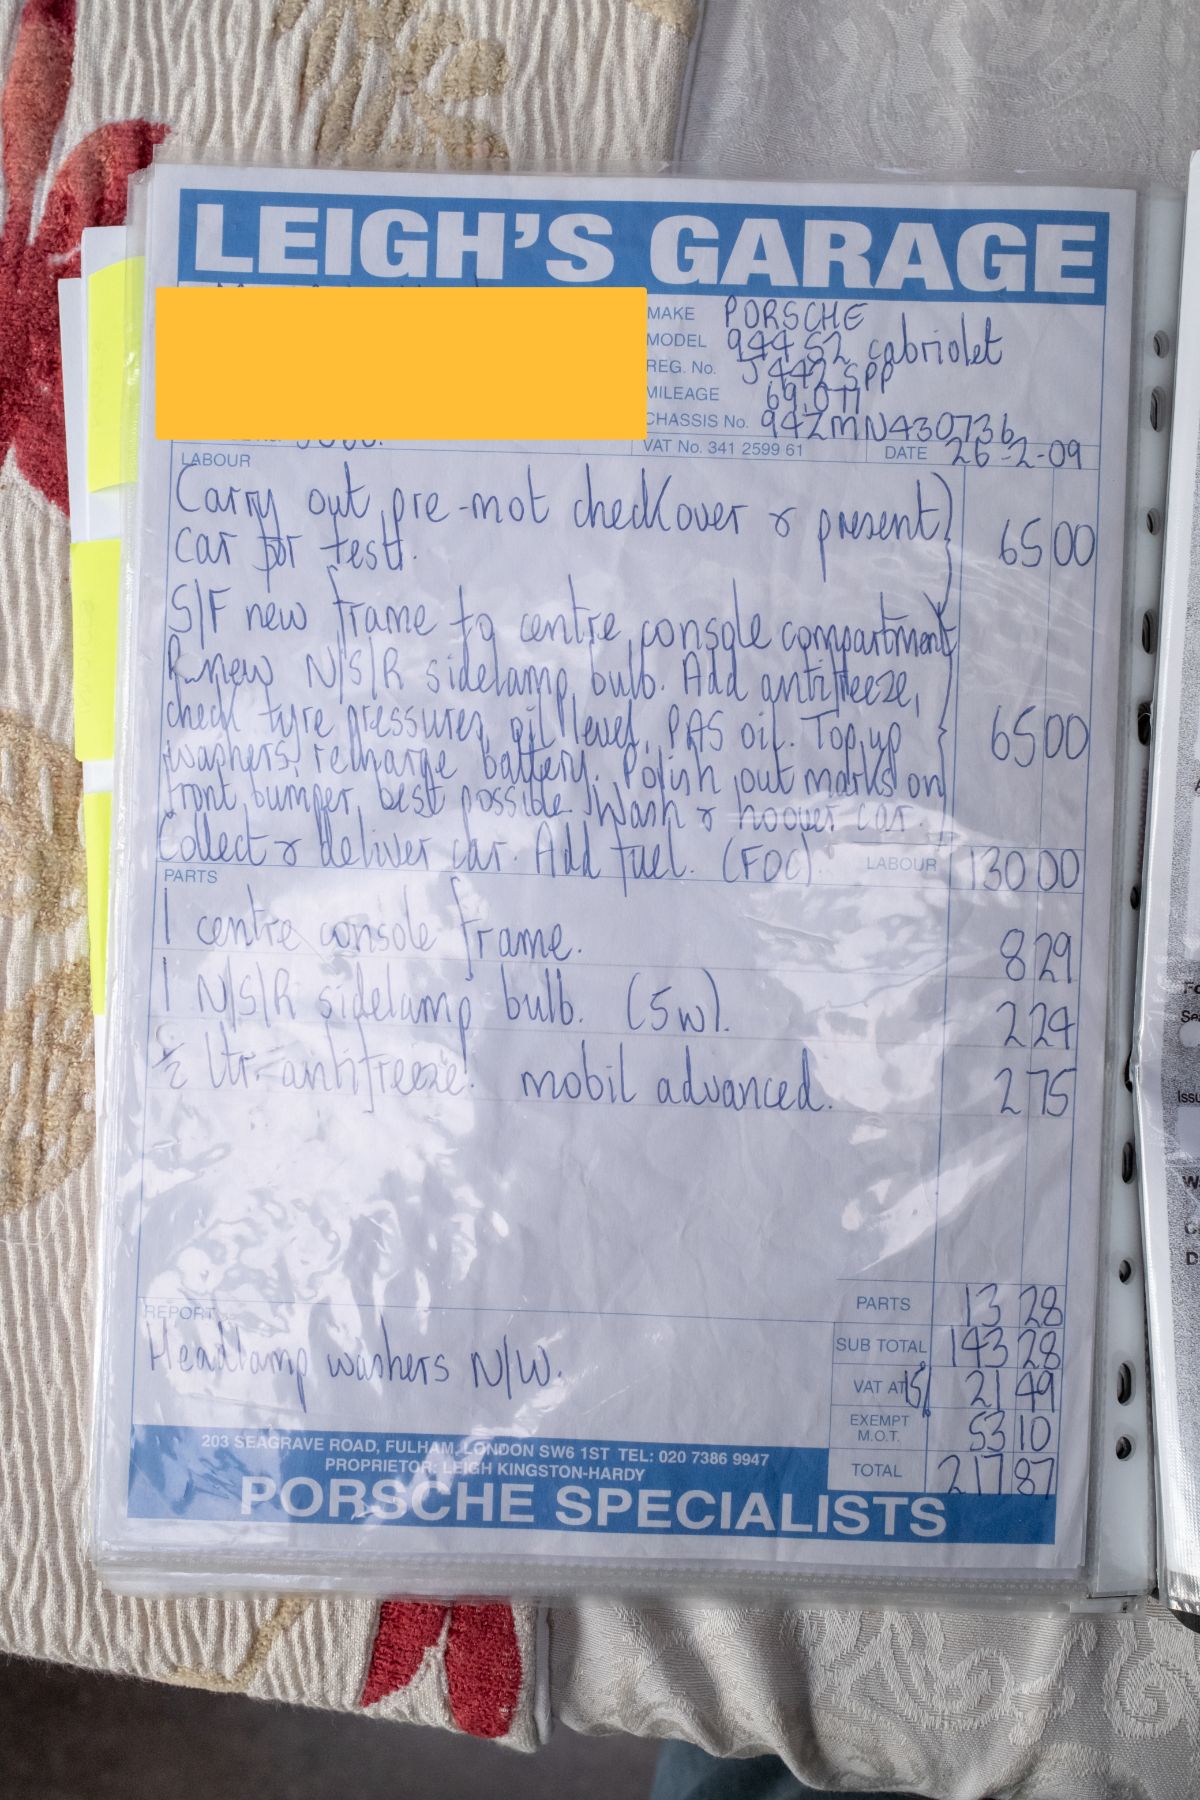 LEIGH'S GARAGE
MAKE PORSCHE
MODEL 944 S2 cabriolet
REG. No. J442 SPP
MILEAGE 69,077
CHASSIS No. 94ZMN430736
VAT No. 341 2599 61 DATE 26-2-09
LABOUR
Carry out pre-mot check over & present
car for test. 65 00
S/F new frame to centre console compartment
Renew N/S/R sidelamp bulb. Add antifreeze,
check tyre pressures, oil level, PAS oil. Top up 65 00
washers, recharge battery. Polish out marks on
front bumper, best possible. Wash & hoover car.
Collect & deliver car. Add fuel. (FOC). LABOUR 130 00
PARTS
1 centre console frame. 8 29
1 N/S/R sidelamp bulb. (5w). 2 24
1/2 ltr. antifreeze. mobil advanced. 2 75
PARTS 13 28
REPORT
SUB TOTAL 143 28
Headlamp washers N/W.
VAT AT 15% 21 49
EXEMPT M.O.T. 53 10
TOTAL 217 87
203 SEAGRAVE ROAD, FULHAM, LONDON SW6 1ST TEL: 020 7386 9947
PROPRIETOR: LEIGH KINGSTON-HARDY
PORSCHE SPECIALISTS